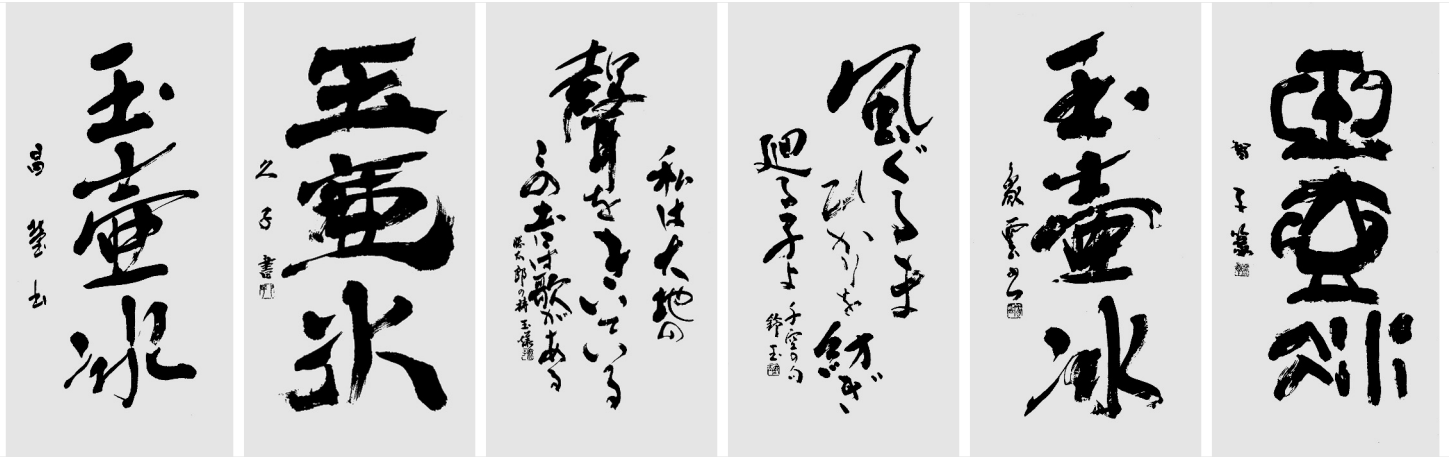 玉壺冰
昌瑩書
玉壺氷
久子書
私は大地の
聲をきいている
この土には歌がある
勝太郎の詩
風ぐるま
ひかりを紡ぎ
廻る子よ
千空の句
鈴玉
玉壺冰
玉壺冰
智子篆